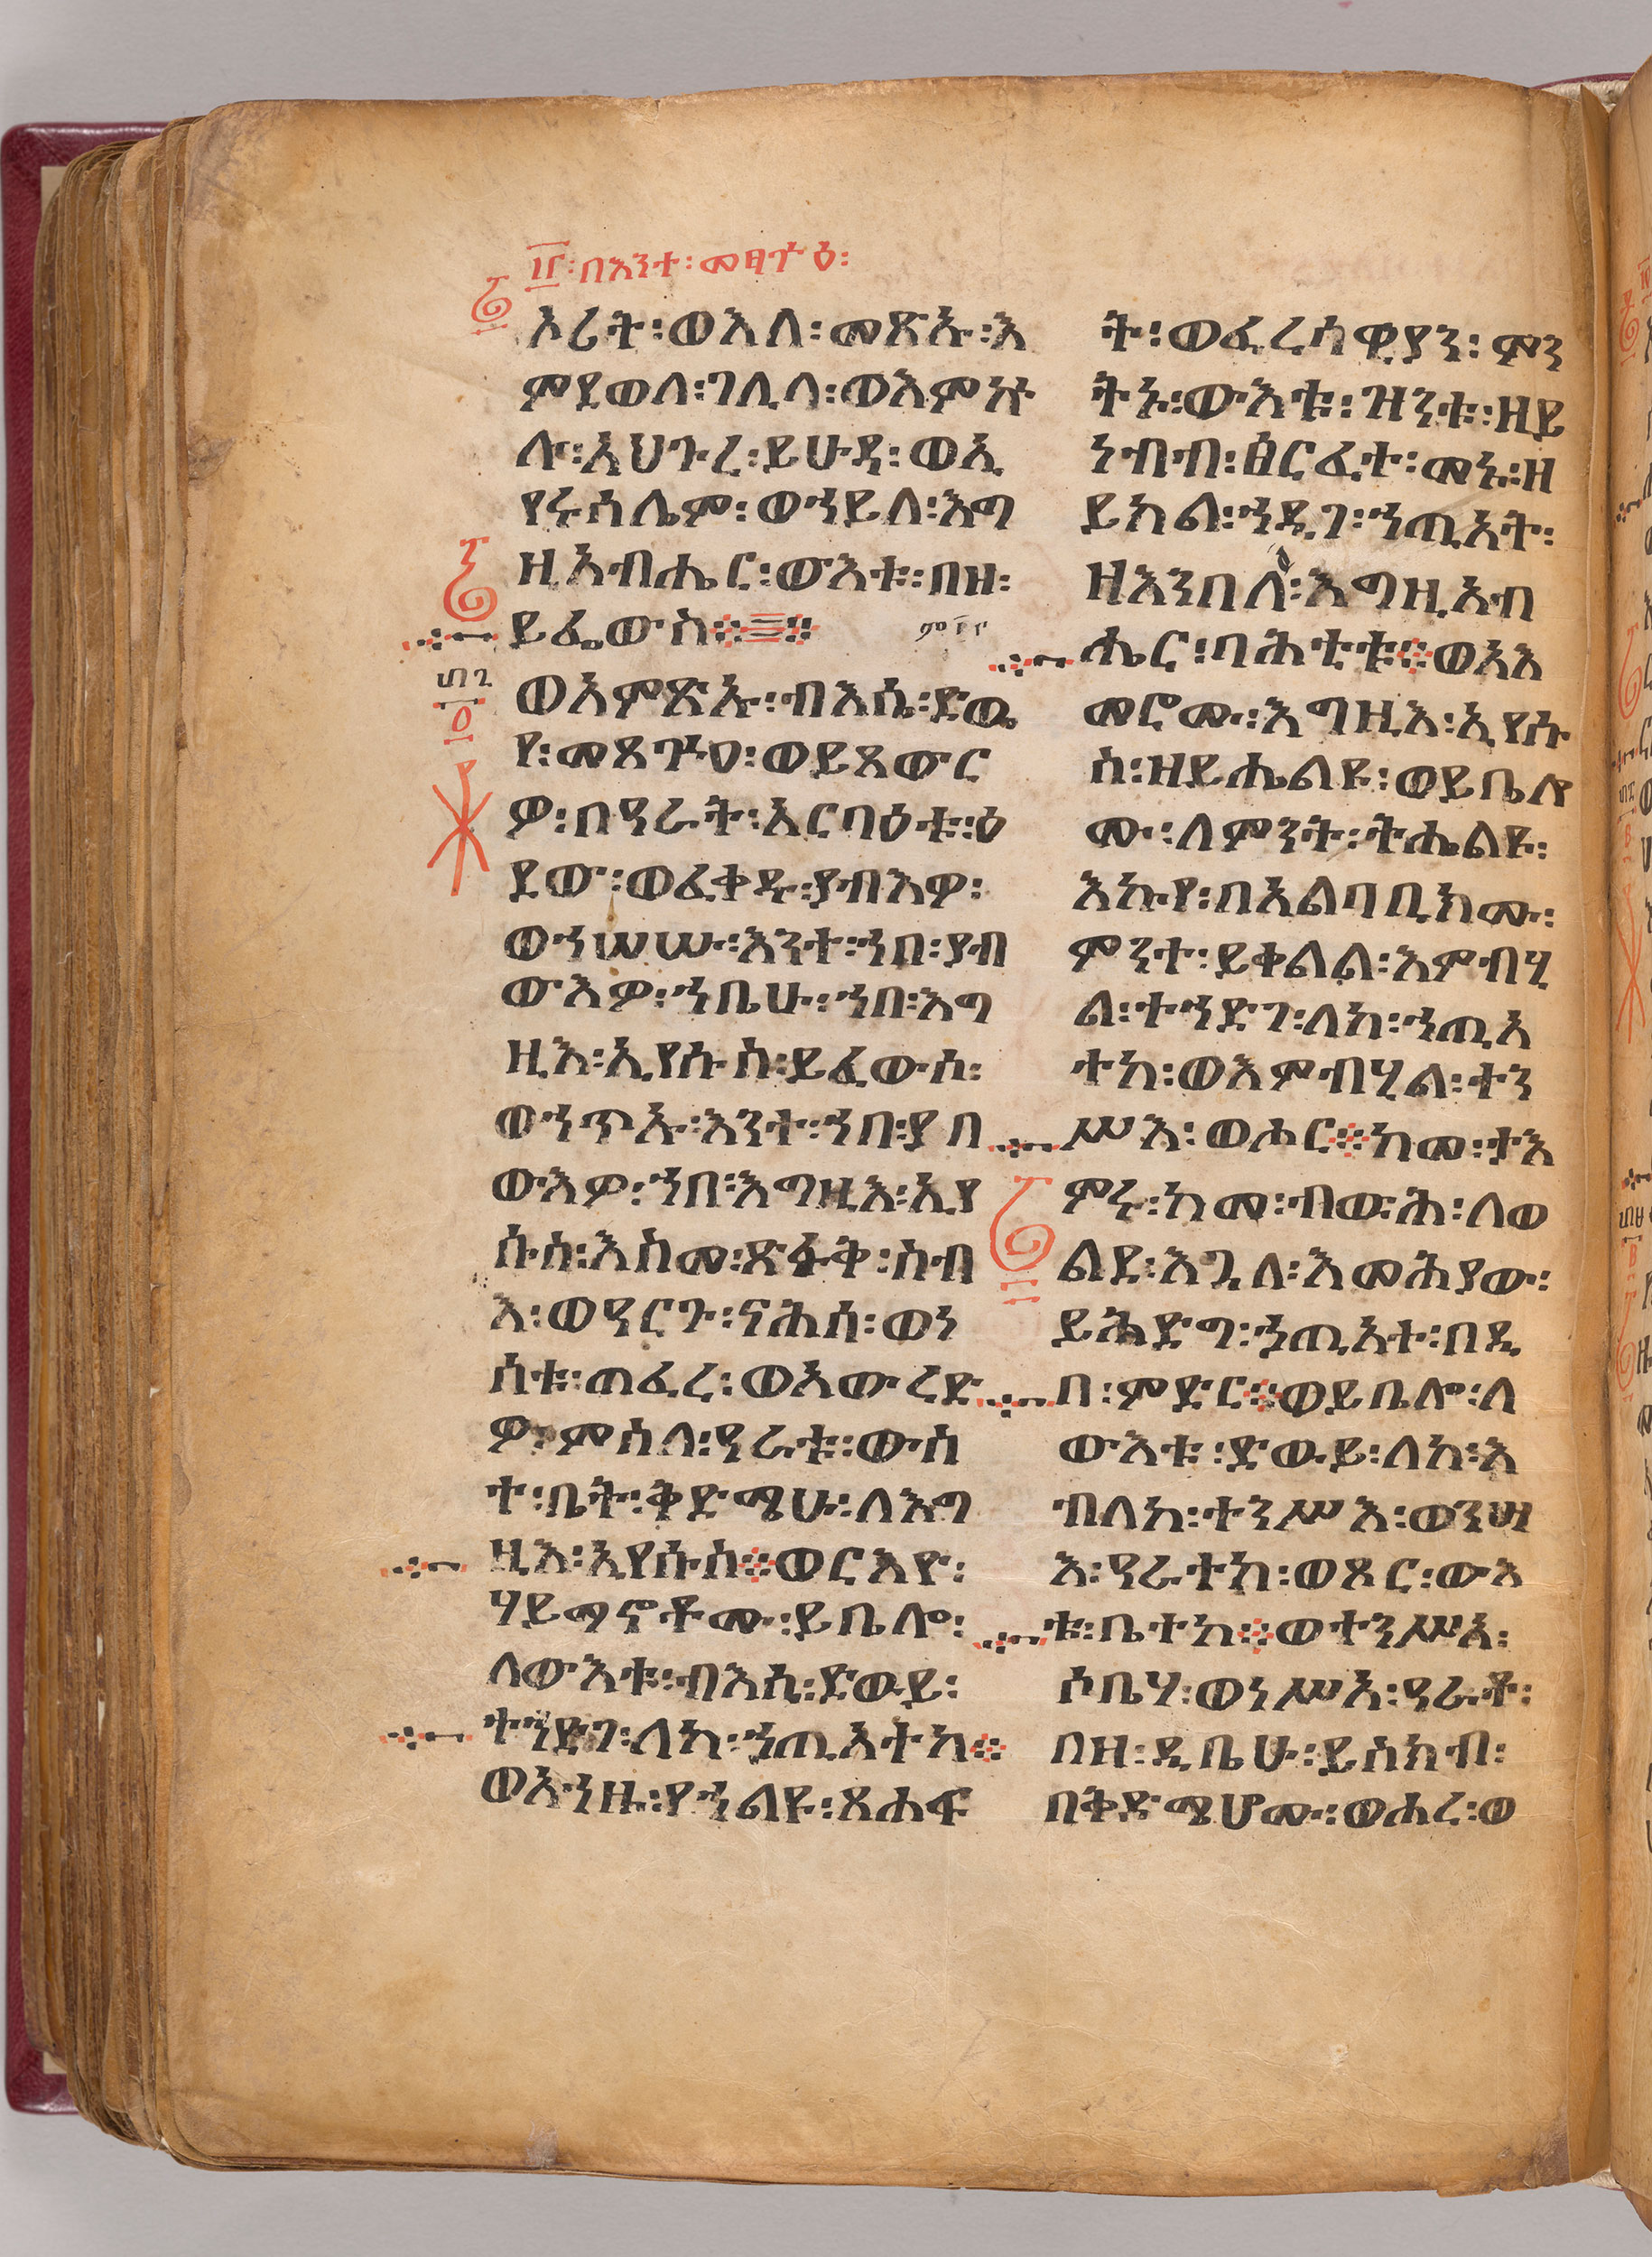 ፲፫፡በእንተ፡መፃጕዕ፡
ኦሪት፡ወእለ፡መጽኡ፡እ
ምደወለ፡ገሊላ፡ወእምኵ
ሉ፡አህጉረ፡ይሁዳ፡ወኢ
የሩሳሌም፡ወኀይለ፡እግ
ዚአብሔር፡ውእቱ፡በዘ፡
ይፌውስ፨
ወአምጽኡ፡ብእሴ፡ድዉ
የ፡መጻጕዐ፡ወይጸውር
ዎ፡በዓራት፡አርባዕቱ፡ዕ
ደው፡ወፈቀዱ፡ያብእዎ፡
ወኀሠሡ፡እንተ፡ኀበ፡ያብ
ውእዎ፡ኀቤሁ፡ኀበ፡እግ
ዚእ፡ኢየሱስ፡ይፈውሶ፡
ወኀጥኡ፡እንተ፡ኀበ፡ያበ
ውእዎ፡ኀበ፡እግዚእ፡ኢየ
ሱስ፡እስመ፡ጽፋቅ፡ሰብ
እ፡ወዓርጉ፡ናሕሰ፡ወነ
ሰቱ፡ጠፈረ፡ወአውረድ
ዎ፡ምስለ፡ዓራቱ፡ውስ
ተ፡ቤት፡ቅድሜሁ፡ለእግ
ዚእ፡ኢየሱስ፨ወርእዮ፡
ሃይማኖቶሙ፡ይቤሎ፡
ለውእቱ፡ብእሲ፡ድዉይ፡
ተኀድገ፡ለከ፡ኀጢአትከ፨
ወአኀዙ፡የኀልዩ፡ጸሐፍ
ት፡ወፈሪሳዊያን፡ምን
ትኑ፡ውእቱ፡ዝንቱ፡ዘይ
ነብብ፡ፅርፈተ፡መኑ፡ዘ
ይክል፡ኀዲገ፡ኀጢአት፡
ዘእንበለ፡እግዚአብ
ሔር፡ባሕቲቱ፨ወአእ
መሮሙ፡እግዚእ፡ኢየሱ
ስ፡ዘይሔልዩ፡ወይቤሎ
ሙ፡ለምንት፡ትሔልዩ፡
እኩየ፡በአልባቢክሙ፡
ምንተ፡ይቀልል፡እምብሂ
ል፡ተኀድገ፡ለከ፡ኀጢአ
ተከ፡ወእምብሂል፡ተን
ሥእ፡ወሖር፨ከመ፡ታእ
ምሩ፡ከመ፡ብውሕ፡ለወ
ልደ፡እጓለ፡እመሕያው፡
ይኅድግ፡ኀጢአተ፡በዲ
በ፡ምድር፨ወይቤሎ፡ለ
ውእቱ፡ድዉይ፡ለከ፡እ
ብለከ፡ተንሥእ፡ወንሣ
እ፡ዓራተከ፡ወጾር፡ውእ
ቱ፡ቤተከ፨ወተንሥአ፡
ሶቤሃ፡ወነሥአ፡ዓራቶ፡
በዘ፡ዲቤሁ፡ይሰክብ፡
በቅድሜሆሙ፡ወሐረ፡ወ